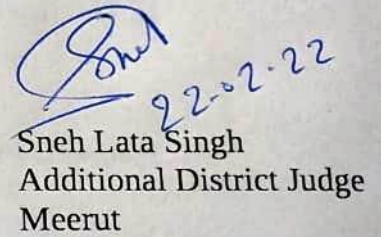 Sneh
22-02-22
Sneh Lata Singh
Additional District Judge
Meerut